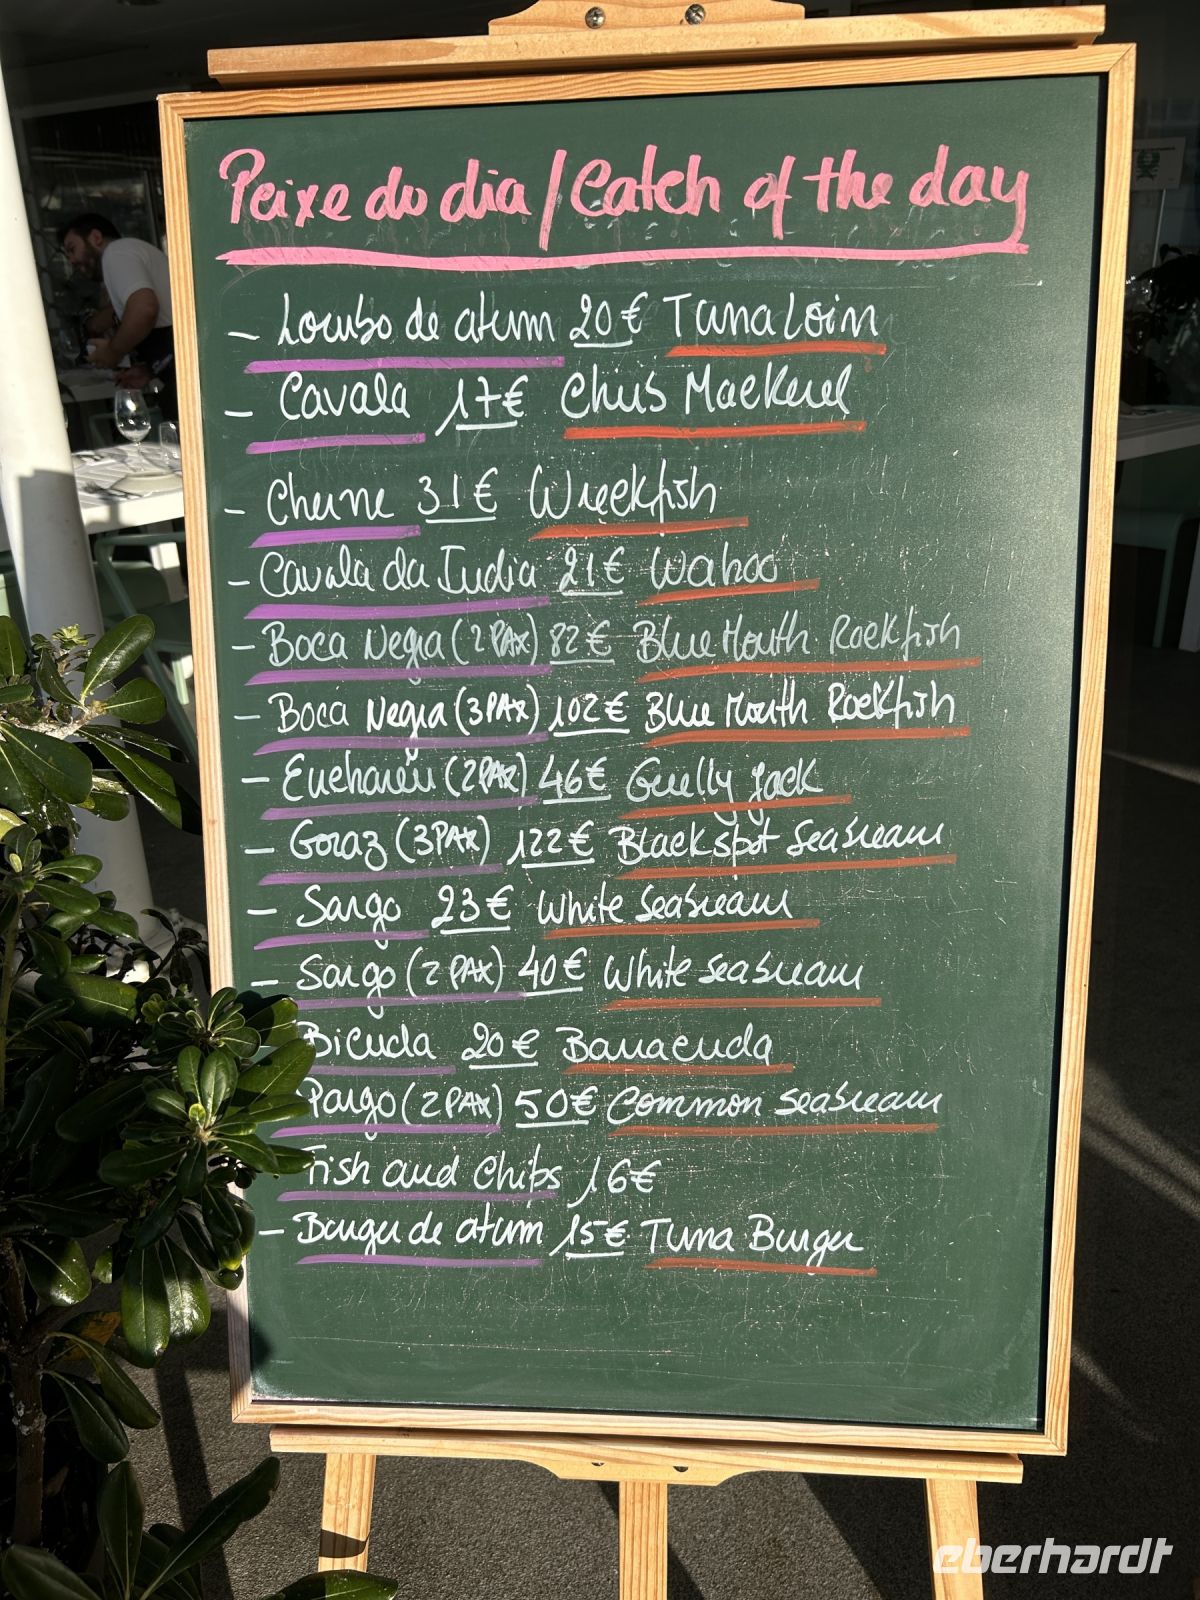 Peixe do dia / Catch of the day
- Lombo de atum 20€ Tuna Loin
- Cavala 17€ Chub Mackerel
- Cherne 31€ Wreckfish
- Cavala da Índia 21€ Wahoo
- Boca Negra (2 PAX) 82€ Blue Mouth Rockfish
- Boca Negra (3 PAX) 102€ Blue Mouth Rockfish
- Encharéu (2 PAX) 46€ Guelly Jack
- Goraz (3 PAX) 122€ Blackspot Seabream
- Sargo 23€ White Seabream
- Sargo (2 PAX) 40€ White Seabream
Bicuda 20€ Barracuda
Pargo (2 PAX) 50€ Common Seabream
Fish and Chips 16€
- Burger de atum 15€ Tuna Burger
eberhardt